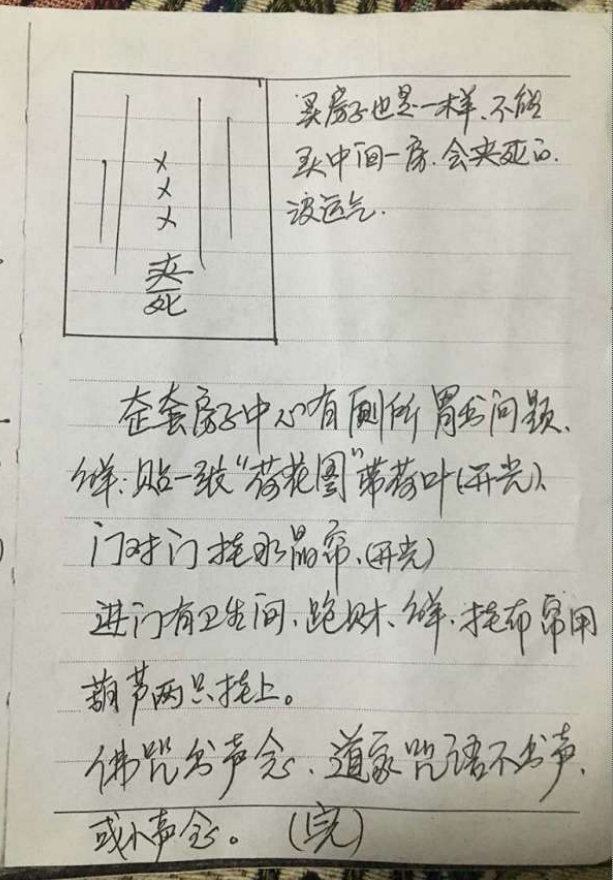 买房子也是一样、不能
买中间一房.会夹死的.
没运气.
×
×
×
夹
死
在套房子中心有厕所胃出问题.
解:贴一张“荷花图”带荷叶(开光)、
门对门挂水晶帘、(开光)
进门有卫生间、跑财、解.挂布帘用
葫芦两只挂上。
佛咒出声念、道家咒语不出声,
或小声念。(完)